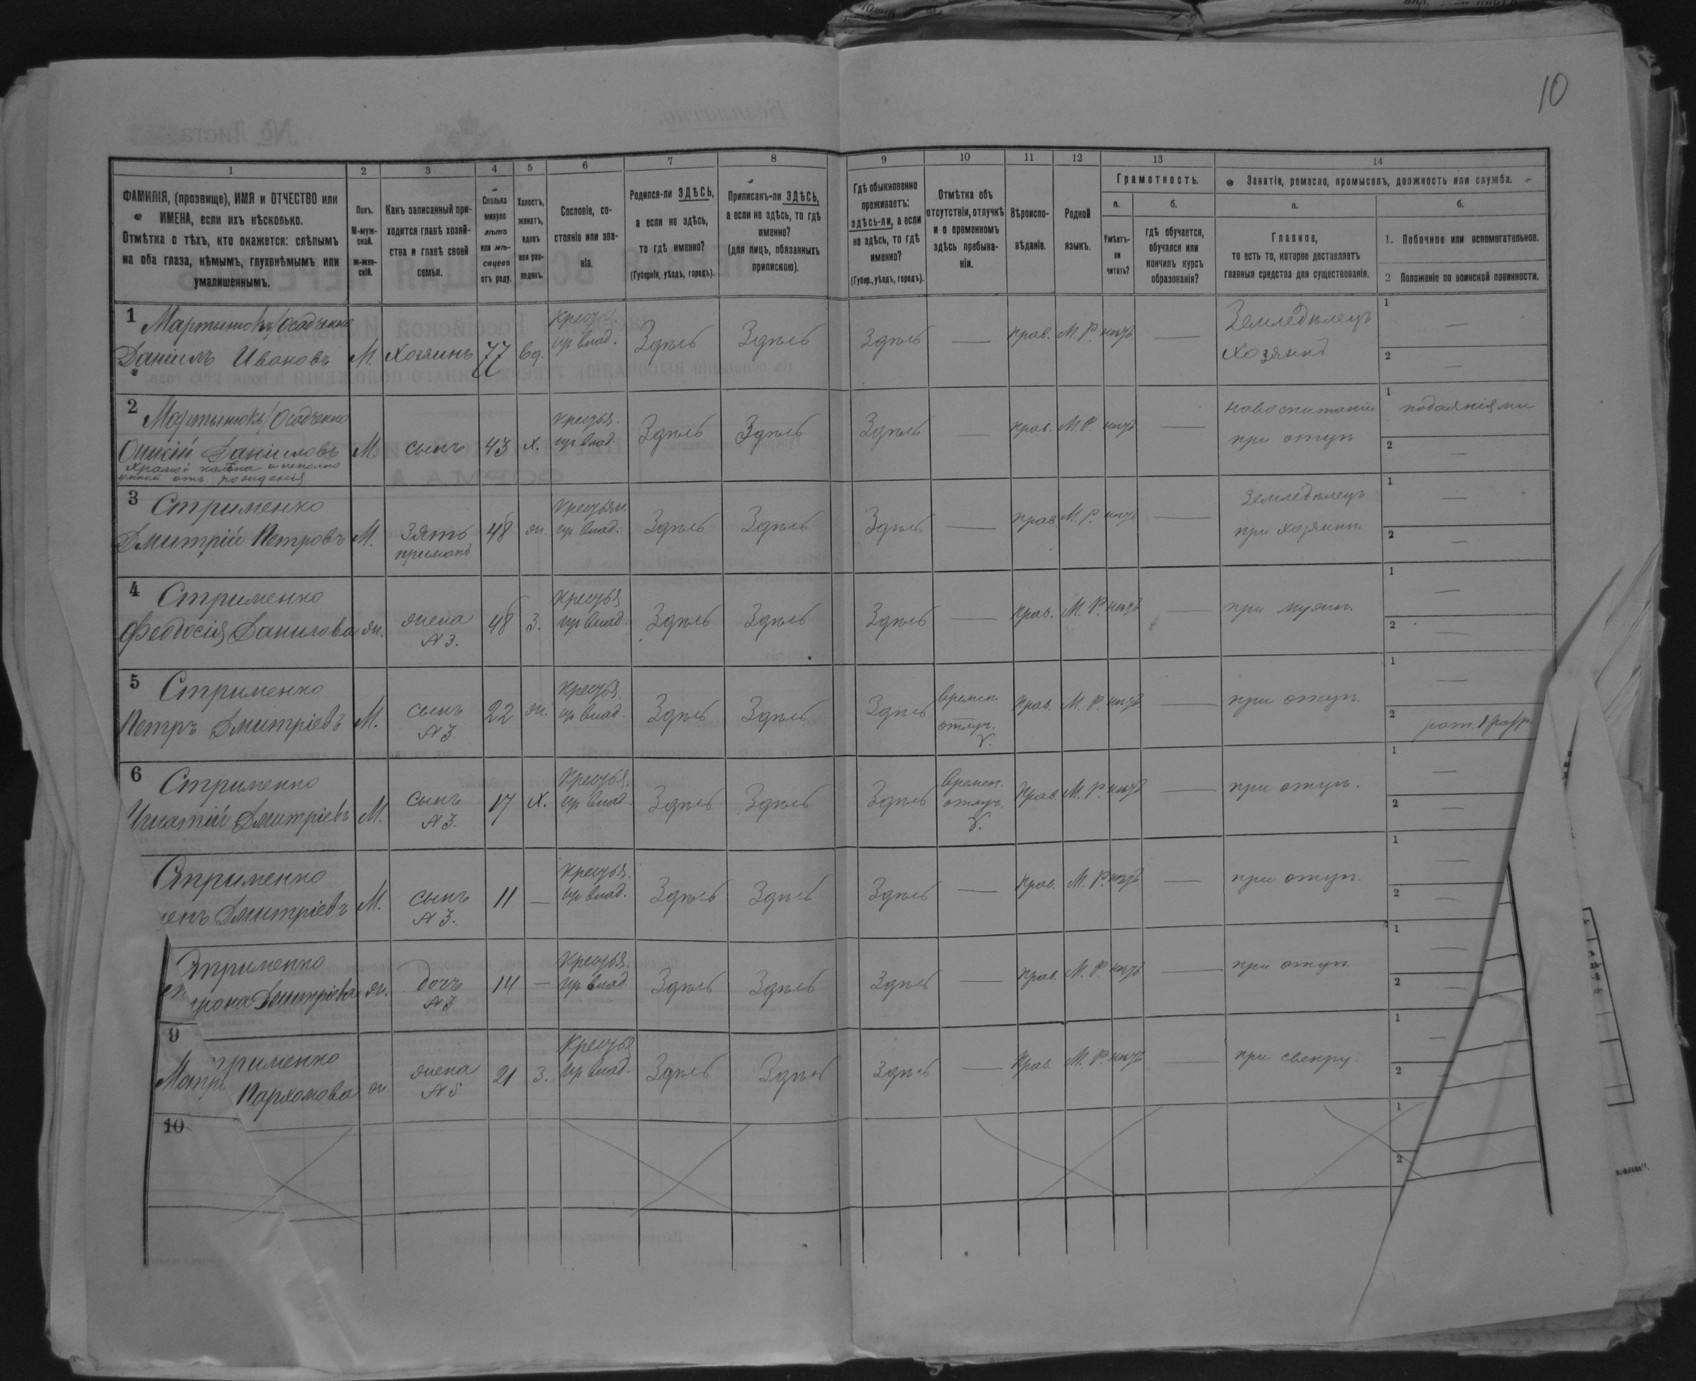 10
1 2 3 4 5 6 7 8 9 10 11 12 13 14
ФАМИЛІЯ, (прозвище), ИМЯ и ОТЧЕСТВО или ИМЕНА, если ихъ нѣсколько.
Отмѣтка о тѣхъ, кто окажется: слѣпымъ на оба глаза, нѣмымъ, глухонѣмымъ или умалишеннымъ.
Полъ.
М-мужской.
Ж-женскій.
Какъ записанный приходится главѣ хозяйства и главѣ своей семьи.
Сколько минуло лѣтъ или мѣсяцевъ отъ роду.
Холостъ, женатъ, вдовъ или разведенъ.
Сословіе, состояніе или званіе.
Родился-ли ЗДѢСЬ, а если не здѣсь, то гдѣ именно?
(Губернія, уѣздъ, городъ).
Приписанъ-ли ЗДѢСЬ, а если не здѣсь, то гдѣ именно?
(для лицъ, обязанныхъ припискою).
Гдѣ обыкновенно проживаетъ: здѣсь-ли, а если не здѣсь, то гдѣ именно?
(Губер., уѣздъ, городъ).
Отмѣтка объ отсутствіи, отлучкѣ и о временномъ здѣсь пребываніи.
Вѣроисповѣданіе.
Родной языкъ.
Грамотность.
а. Умѣетъ-ли читать?
б. гдѣ обучается, обучался или кончилъ курсъ образованія?
Занятіе, ремесло, промыселъ, должность или служба.
а. Главное, то есть то, которое доставляетъ главныя средства для существованія.
б.
1. Побочное или вспомогательное.
2 Положеніе по воинской повинности.
1 Мартинюкъ/Осадченко
Даніилъ Ивановъ М. Хозяинъ 77 вд. крестья. ир влад. Здѣсь Здѣсь Здѣсь — прав. М. Р. нѣтъ — Земледѣлецъ хозяинъ 1 — 2 —
2 Мартынюкъ/Осадченко
Даніиловъ М. сынъ 43 х. крестья. Здѣсь Здѣсь Здѣсь — прав. М. Р. нѣтъ — при отцѣ 1 подаяніями 2 —
отъ рожденія
3 Стрименко
Дмитрій Петровъ М. Зять примакъ 48 ж. крестьян. Здѣсь Здѣсь Здѣсь — прав. М. Р. нѣтъ — Земледѣлецъ при хозяинѣ 1 — 2 —
4 Стрименко
Феодосія Данилова ж. жена №3. 48 З. крестья. Здѣсь Здѣсь Здѣсь — прав. М. Р. нѣтъ — при мужѣ 1 — 2 —
5 Стрименко
Петръ Дмитріевъ М. сынъ №3. 22 ж. крестья. Здѣсь Здѣсь Здѣсь времен. отлуч. прав. М. Р. нѣтъ — при отцѣ 1 — 2 рат. 1 разр.
6 Стрименко
Игнатій Дмитріевъ М. сынъ №3. 17 х. крестья. Здѣсь Здѣсь Здѣсь времен. отлуч. прав. М. Р. нѣтъ — при отцѣ. 1 — 2 —
Стрименко
Дмитріевъ М. сынъ №3. 11 — крестья. Здѣсь Здѣсь Здѣсь — прав. М. Р. нѣтъ — при отцѣ. 1 — 2 —
Стрименко
Дмитріева ж. дочь №3 14 — крестья. Здѣсь Здѣсь Здѣсь — прав. М. Р. нѣтъ — при отцѣ 1 — 2 —
9 Стрименко
Пархомова ж. жена №5 21 З. крестья. Здѣсь Здѣсь Здѣсь — прав. М. Р. нѣтъ — при свекру. 1 — 2 —
10 1 2